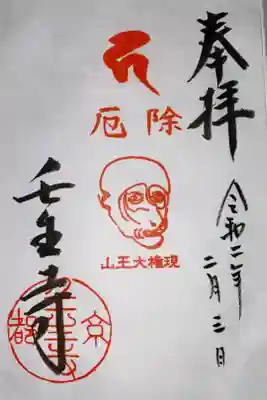 奉拝
令和二年
二月三日
厄除
山王大権現
壬生寺
京都